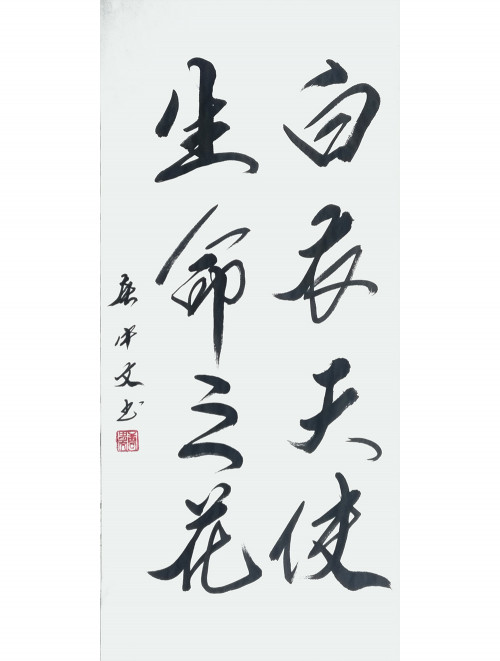 白衣天使
生命之花
成文书